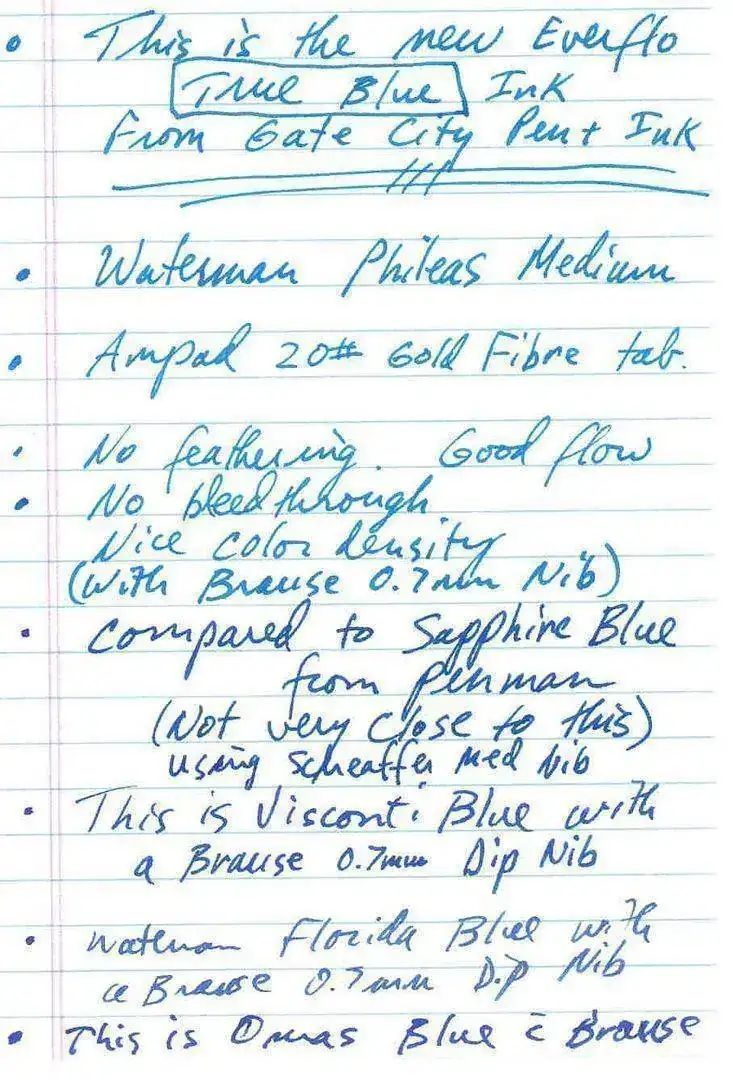 • This is the new Everflo
True Blue Ink
From Gate City Pen + Ink
• Waterman Phileas Medium
• Ampad 20# Gold Fibre tab.
• No feathering. Good flow
• No bleedthrough
Nice color density
(with Brause 0.7mm Nib)
• Compared to Sapphire Blue
from Penman
(Not very close to this)
using Scheaffer Med Nib
• This is Visconti Blue with
a Brause 0.7mm Dip Nib
• Waterman Florida Blue with
a Brause 0.7mm Dip Nib
• This is Omas Blue c̄ Brause